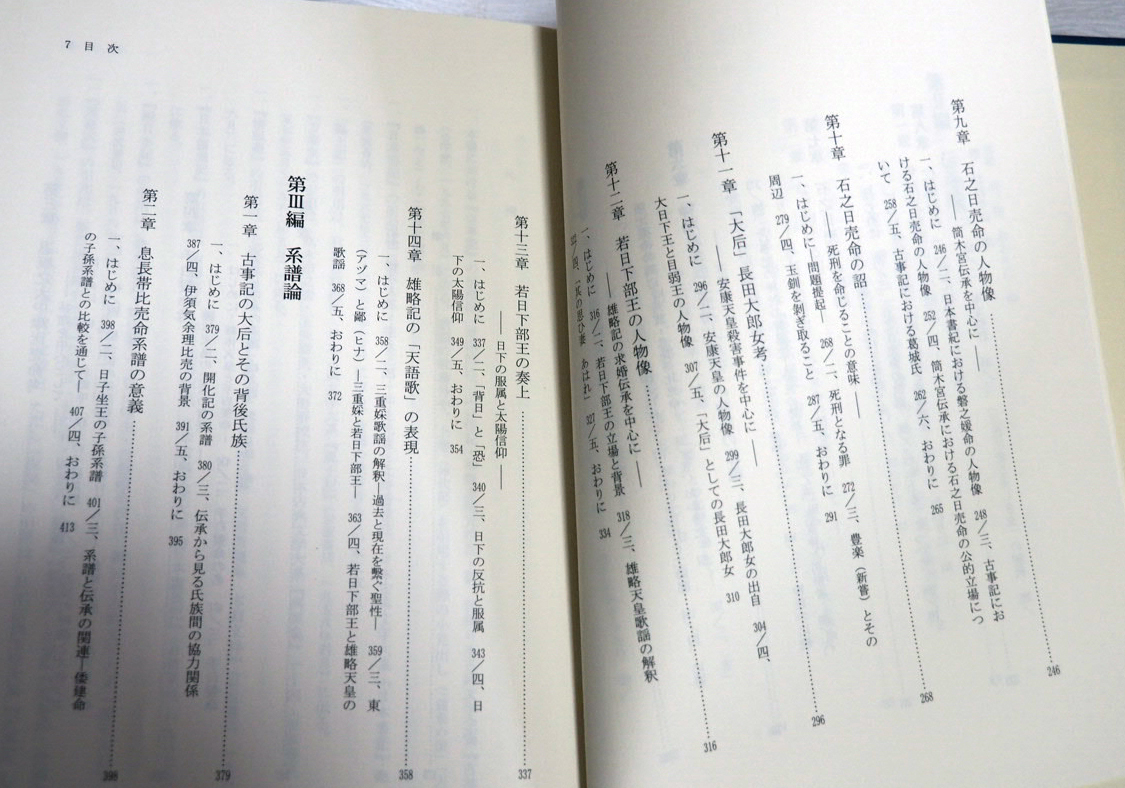 第九章　石之日売命の人物像……246
――筒木宮伝承を中心に――
一、はじめに　246／二、日本書紀における磐之媛命の人物像　248／三、古事記にお
ける石之日売命の人物像　252／四、筒木宮伝承における石之日売命の公的立場につ
いて　258／五、古事記における葛城氏　262／六、おわりに　265
第十章　石之日売命の詔……268
――死刑を命じることの意味――
一、はじめに―問題提起―　268／二、死刑となる罪　272／三、豊楽（新嘗）とその
周辺　279／四、玉釧を剥ぎ取ること　287／五、おわりに　291
第十一章　「大后」長田大郎女考……296
――安康天皇殺害事件を中心に――
一、はじめに　296／二、安康天皇の人物像　299／三、長田大郎女の出自　304／四、
大日下王と目弱王の人物像　307／五、「大后」としての長田大郎女　310
第十二章　若日下部王の人物像……316
――雄略記の求婚伝承を中心に――
一、はじめに　316／二、若日下部王の立場と背景　318／三、雄略天皇歌謡の解釈
322／四、「其の思ひ妻　あはれ」　327／五、おわりに　334
7　目次
第十三章　若日下部王の奏上……337
――日下の服属と太陽信仰――
一、はじめに　337／二、「背日」と「恐」　340／三、日下の反抗と服属　343／四、日
下の太陽信仰　349／五、おわりに　354
第十四章　雄略記の「天語歌」の表現……358
一、はじめに　358／二、三重婇歌謡の解釈―過去と現在を繫ぐ聖性―　359／三、東
（アヅマ）と鄙（ヒナ）―三重婇と若日下部王―　363／四、若日下部王と雄略天皇の
歌謡　368／五、おわりに　372
第Ⅲ編　系譜論
第一章　古事記の大后とその背後氏族……379
一、はじめに　379／二、開化記の系譜　380／三、伝承から見る氏族間の協力関係
387／四、伊須気余理比売の背景　391／五、おわりに　395
第二章　息長帯比売命系譜の意義……398
一、はじめに　398／二、日子坐王の子孫系譜　401／三、系譜と伝承の関連―倭建命
の子孫系譜との比較を通じて―　407／四、おわりに　413